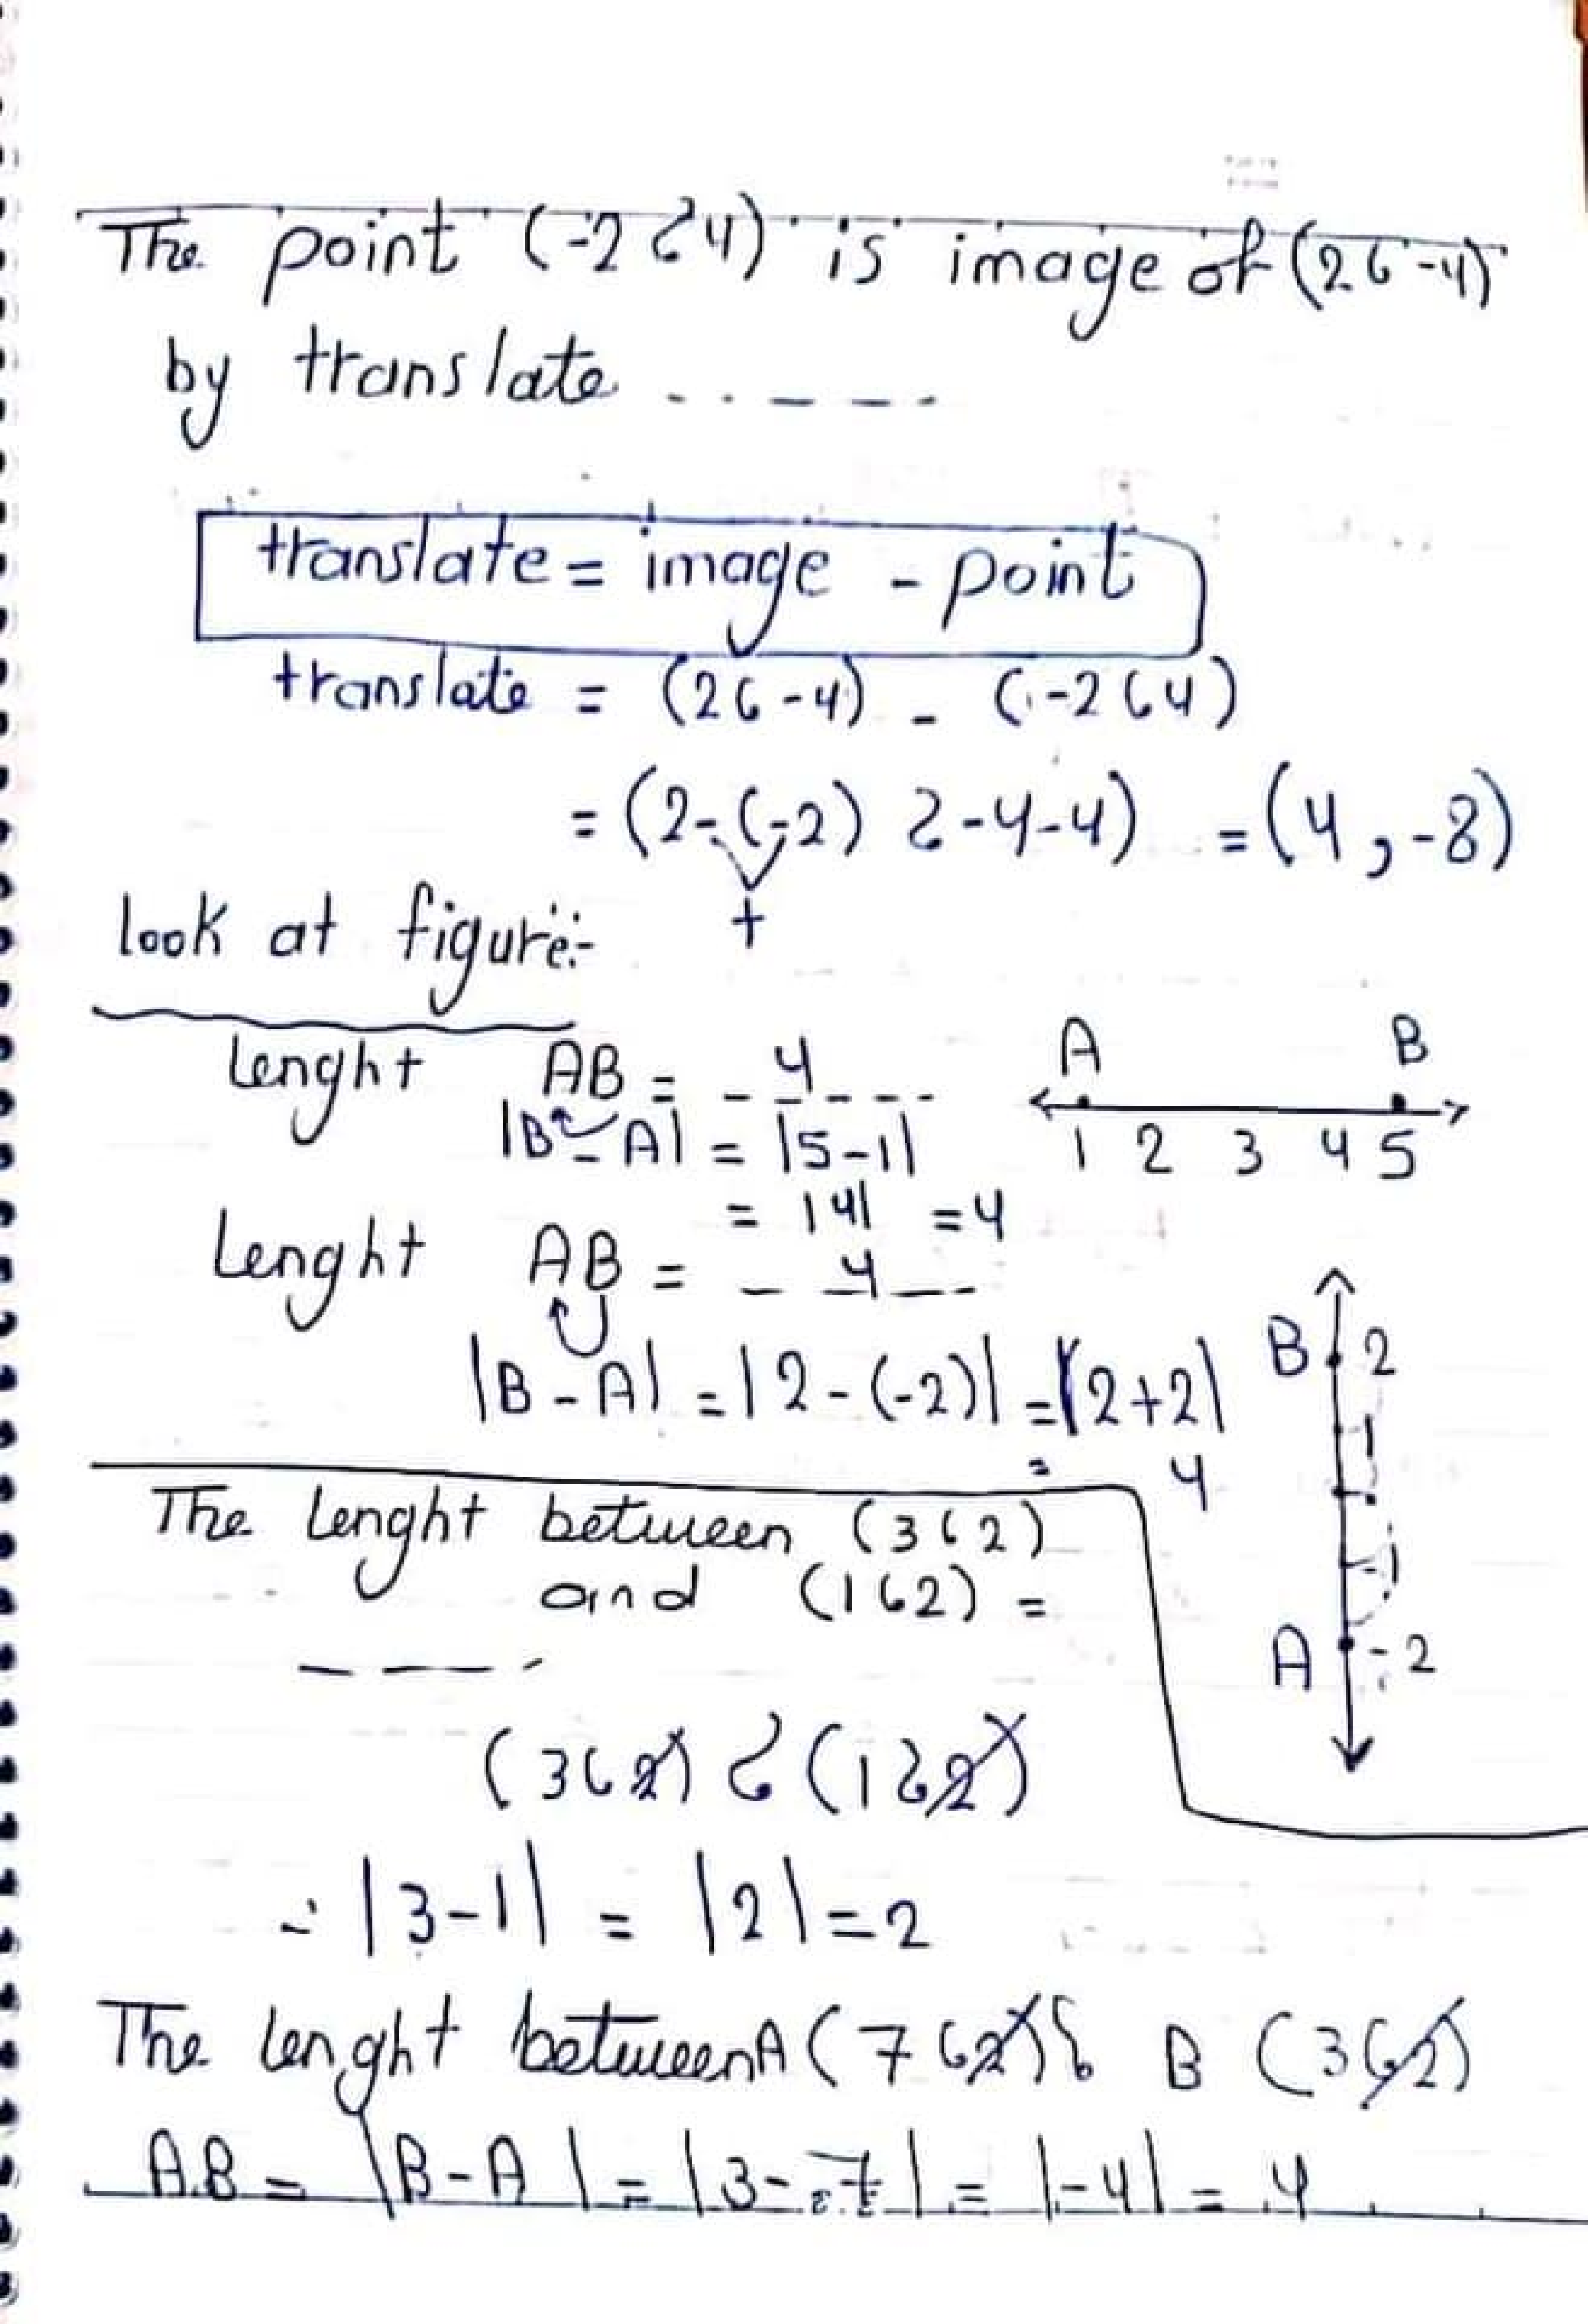 The point (-2 ، 4) is image of (2 ، -4)
by translate . . - - - -
translate = image - point
translate = (2 ، -4) - (-2 ، 4)
= (2 - (-2) ، -4-4) = (4 , -8)
+
look at figure:-
Lenght AB = - 4 - - - -
A B
|B - A| = |5-1|
1 2 3 4 5
= |4| = 4
Lenght AB = - 4 - -
|B - A| = |2-(-2)| = |2+2|
= 4
B 2
1
-1
A -2
The Lenght between (3 ، 2)
and (1 ، 2) =
- - - -
(3 ، 2) ، (1 ، 2)
= |3-1| = |2| = 2
The Lenght between A (7 ، 2) ، B (3 ، 2)
AB = |B-A| = |3-7| = |-4| = 4